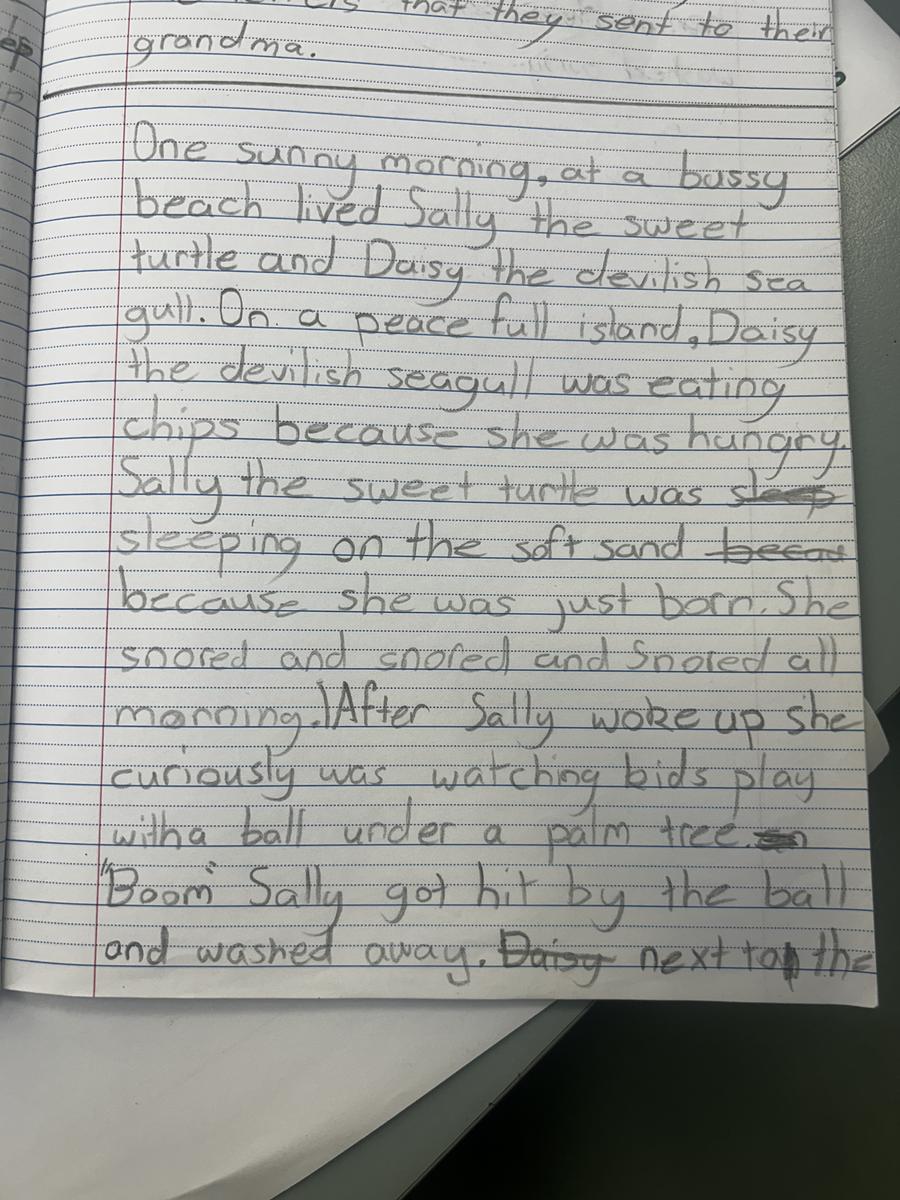 that they sent to their
grandma.
One sunny morning, at a bussy
beach lived Sally the sweet
turtle and Daisy the devilish sea
gull. On a peace full island, Daisy
the devilish seagull was eating
chips because she was hungry.
Sally the sweet turtle was sleep
sleeping on the soft sand becau
because she was just born. She
snored and snored and Snored all
morning. After Sally woke up she
curiously was watching bids play
with a ball under a palm tree.
"Boom" Sally got hit by the ball
and washed away. Daisy next to the